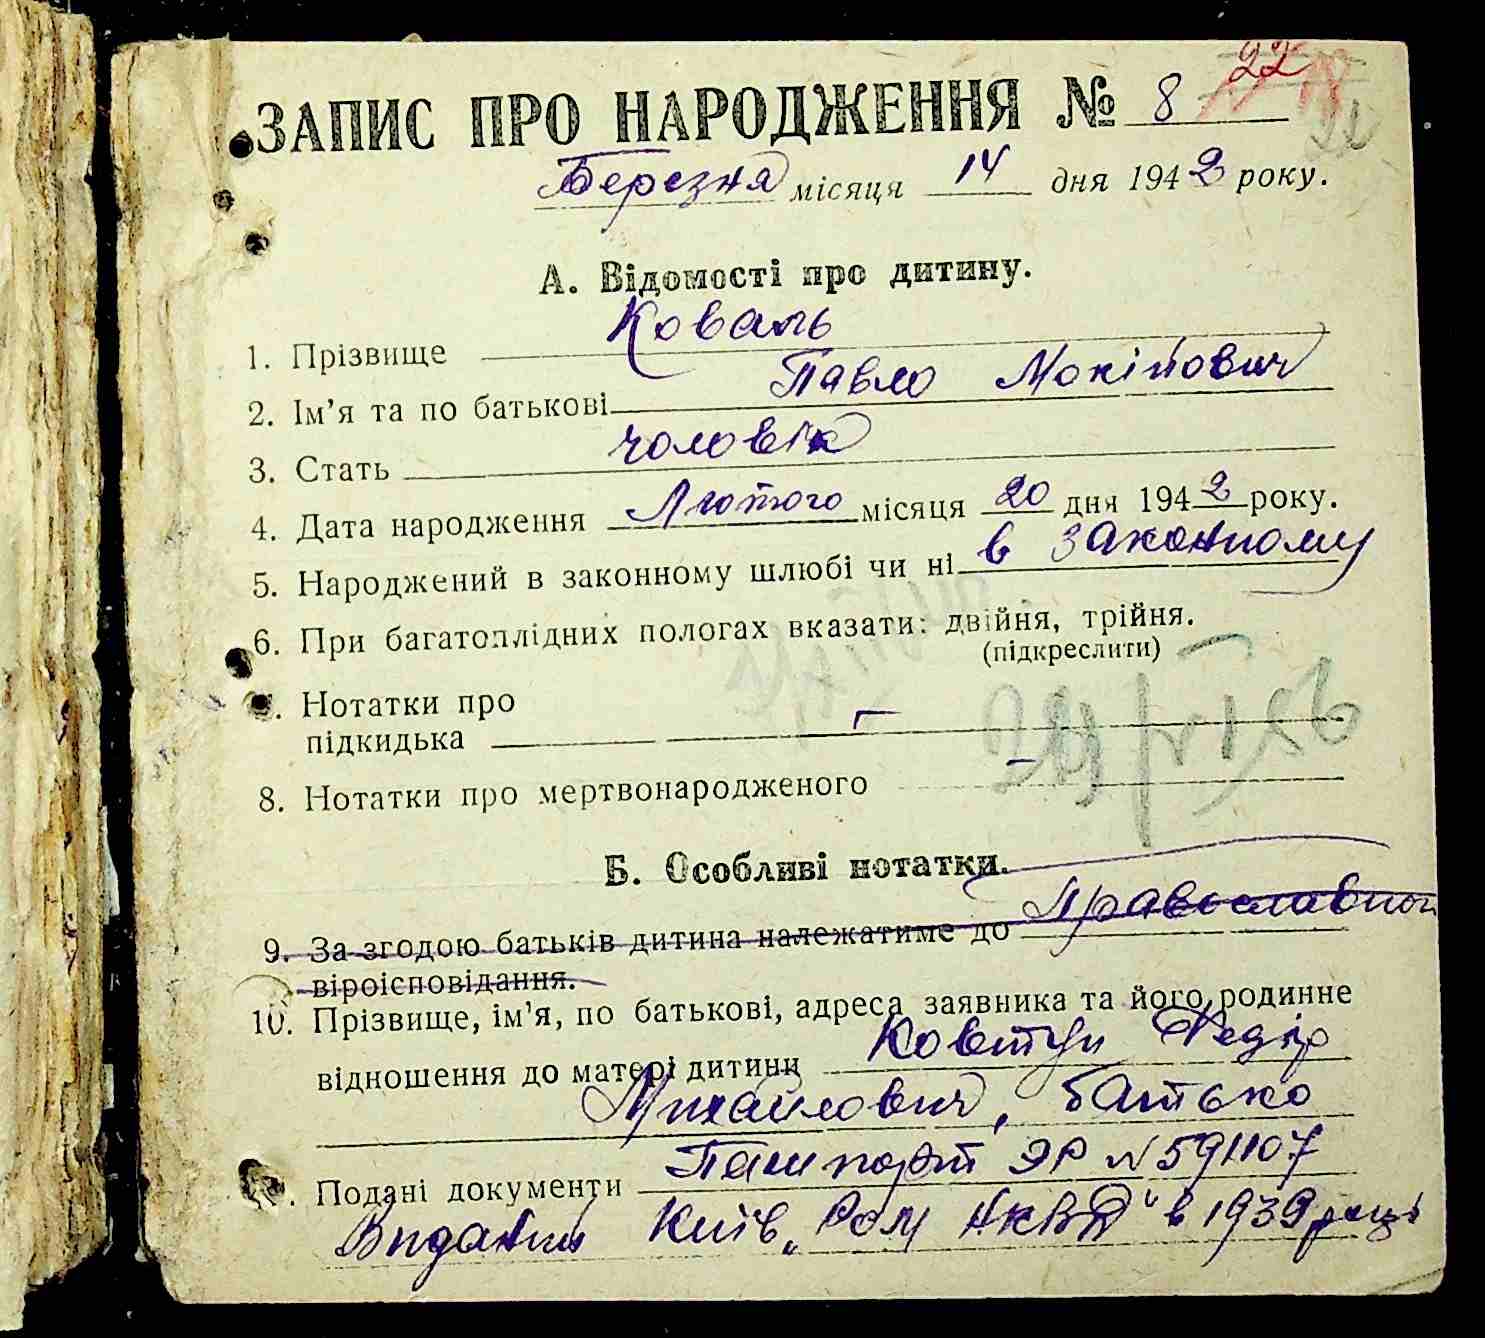 22
ЗАПИС ПРО НАРОДЖЕННЯ № 8
Березня місяця 14 дня 1942 року.
А. Відомості про дитину.
1. Прізвище Коваль
2. Ім'я та по батькові Павло Мокійович
3. Стать чоловік
4. Дата народження Лютого місяця 20 дня 1942 року.
5. Народжений в законному шлюбі чи ні в законному
6. При багатоплідних пологах вказати: двійня, трійня.
(підкреслити)
. Нотатки про
підкидька —
8. Нотатки про мертвонародженого —
Б. Особливі нотатки.
9. За згодою батьків дитина належатиме до Православной
віроісповідання.
10. Прізвище, ім'я, по батькові, адреса заявника та його родинне
відношення до матері дитини Ковтун Федір
Михайлович, батько
. Подані документи Пашпорт ЭР № 591107
Виданий Київ „Ром НКВД" в 1939 році